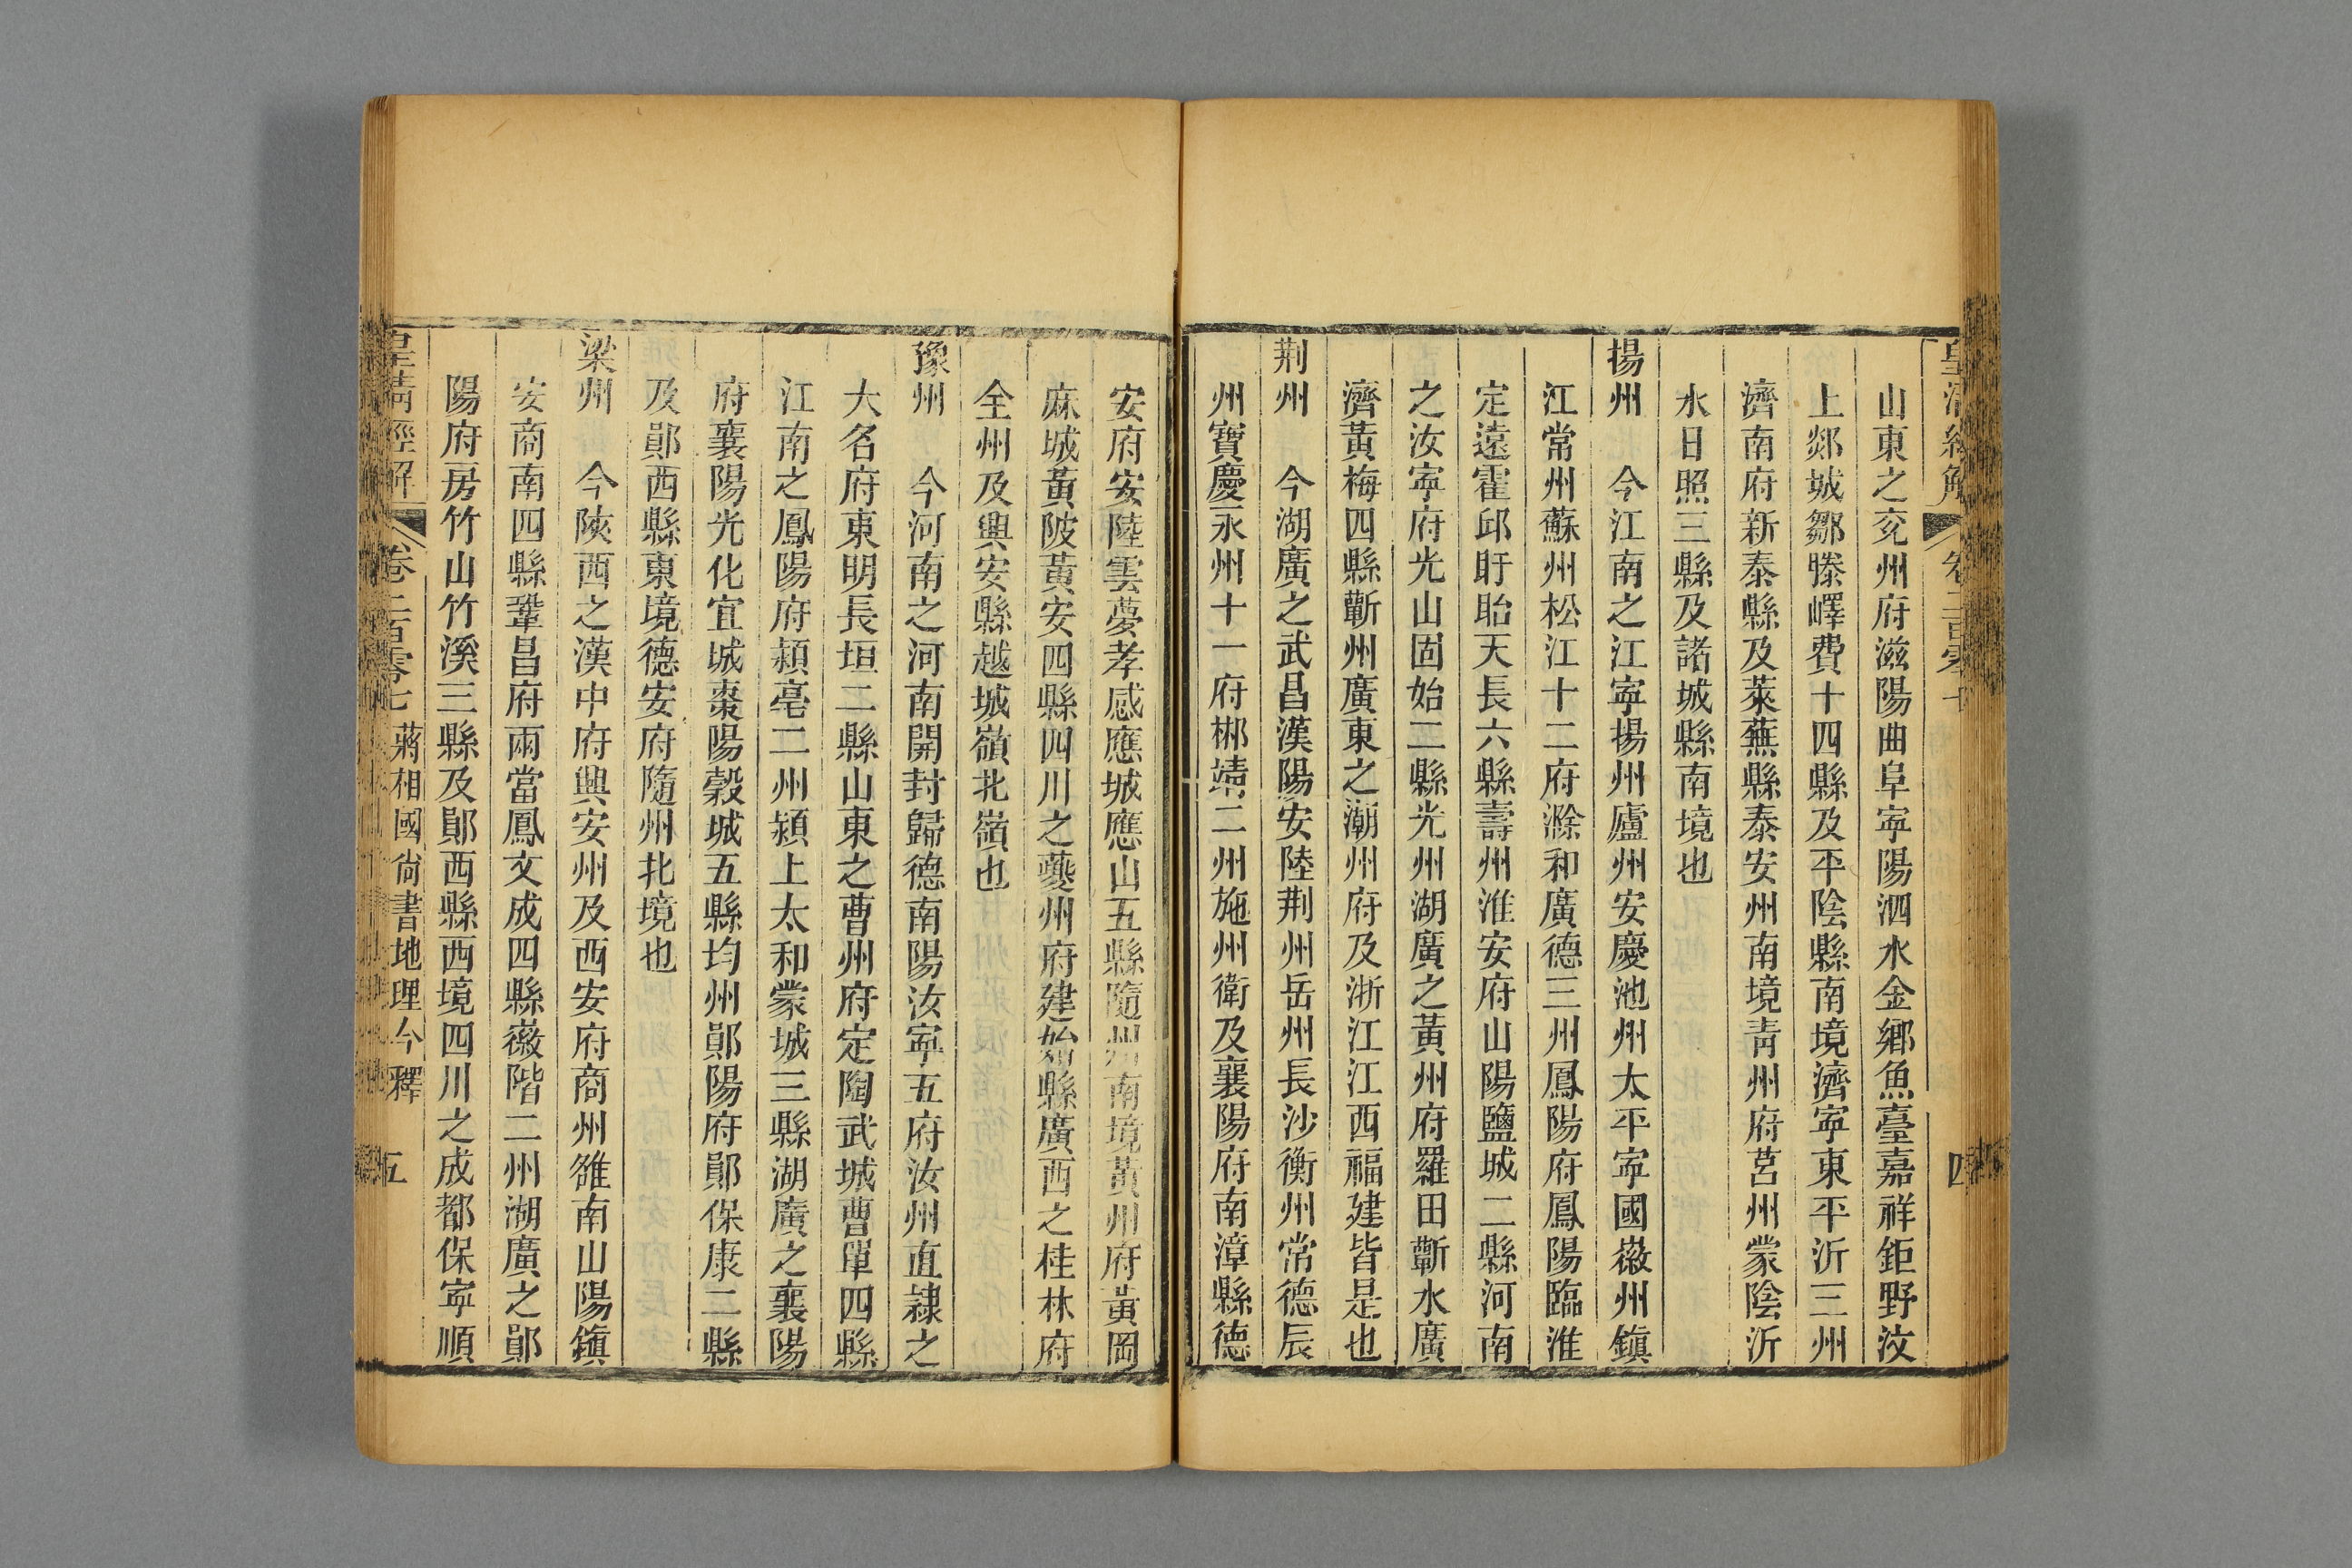 皇清經解 卷二百零七 四
山東之兖州府滋陽曲阜寜陽泗水金鄉魚臺嘉祥鉅野汶
上郯城鄒滕嶧費十四縣及平陰縣南境濟寜東平沂三州
濟南府新泰縣及萊蕪縣泰安州南境靑州府莒州蒙陰沂
水日照三縣及諸城縣南境也
揚州 今江南之江寜揚州廬州安慶池州太平寜國徽州鎭
江常州蘇州松江十二府滁和廣德三州鳳陽府鳳陽臨淮
定遠霍邱盱眙天長六縣壽州淮安府山陽鹽城二縣河南
之汝寜府光山固始二縣光州湖廣之黃州府羅田蘄水廣
濟黃梅四縣蘄州廣東之潮州府及浙江江西福建皆是也
荆州 今湖廣之武昌漢陽安陸荆州岳州長沙衡州常德辰
州寶慶永州十一府郴靖二州施州衛及襄陽府南漳縣德
安府安陸雲夢孝感應城應山五縣隨州南境黃州府黃岡
麻城黃陂黃安四縣四川之夔州府建始縣廣西之桂林府
全州及興安縣越城嶺北嶺也
豫州 今河南之河南開封歸德南陽汝寜五府汝州直隷之
大名府東明長垣二縣山東之曹州府定陶武城曹單四縣
江南之鳳陽府潁亳二州潁上太和蒙城三縣湖廣之襄陽
府襄陽光化宜城棗陽榖城五縣均州鄖陽府鄖保康二縣
及鄖西縣東境德安府隨州北境也
梁州 今陝西之漢中府興安州及西安府商州雒南山陽鎭
安商南四縣鞏昌府兩當鳳文成四縣徽階二州湖廣之鄖
陽府房竹山竹溪三縣及鄖西縣西境四川之成都保寜順
皇清經解 卷二百零七 蔣相國尙書地理今釋 五